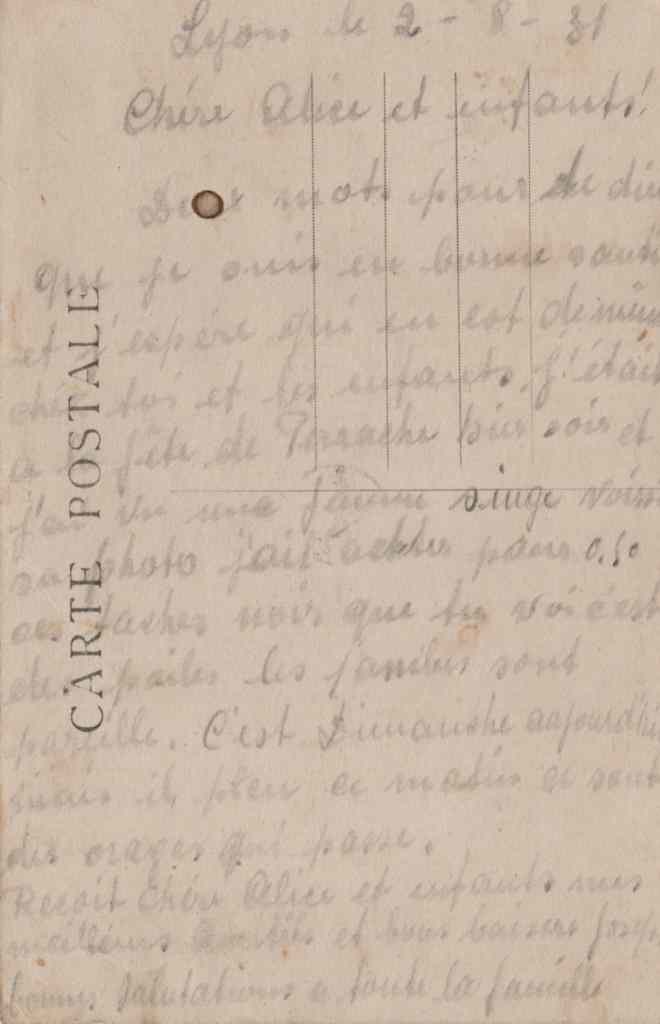 Lyon le 2 - 8 - 31
Chére Alice et enfants!
Deux mots pour te dire
que je suis en bonne santé
et j'espére qui en est de même
chéz toi et les enfants, j'étais
a la fête de Perrache hier soir et
j'ai vu une femme singe voissi
sa photo j'ait acheter pour 0,50
ces taches noir que tu voi c'est
des poiles les jambes sont
pareille. C'est Dimanche aujourd'hui
mais il pleu ce matin ce sont
des orages qui passe.
Recoit Chére Alice et enfants mes
meilleurs amitiés et bons baisers Joseph
bonnes salutations a toute la famille
CARTE POSTALE